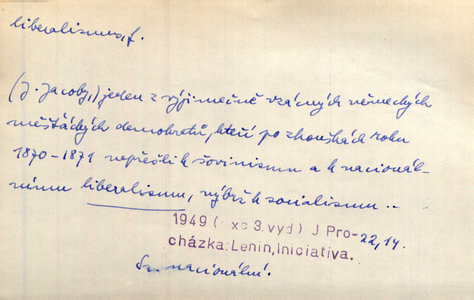 liberalismus, f.
(J. Jacoby,) jeden z výjimečně vzácných německých
měšťáckých demokratů, kteří po zkouškách roku
1870-1871 nepřešli k šovinismu a k nacionál-
nímu liberalismu, nýbrž k socialismu. -
1949 ( xc 3.vyd) J Pro- 22,14.
cházka:Lenin,Iniciativa.
Sr. nacionální.